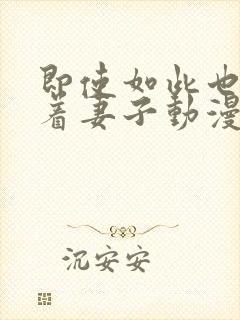 即使如此也
着妻子動漫
沉安安